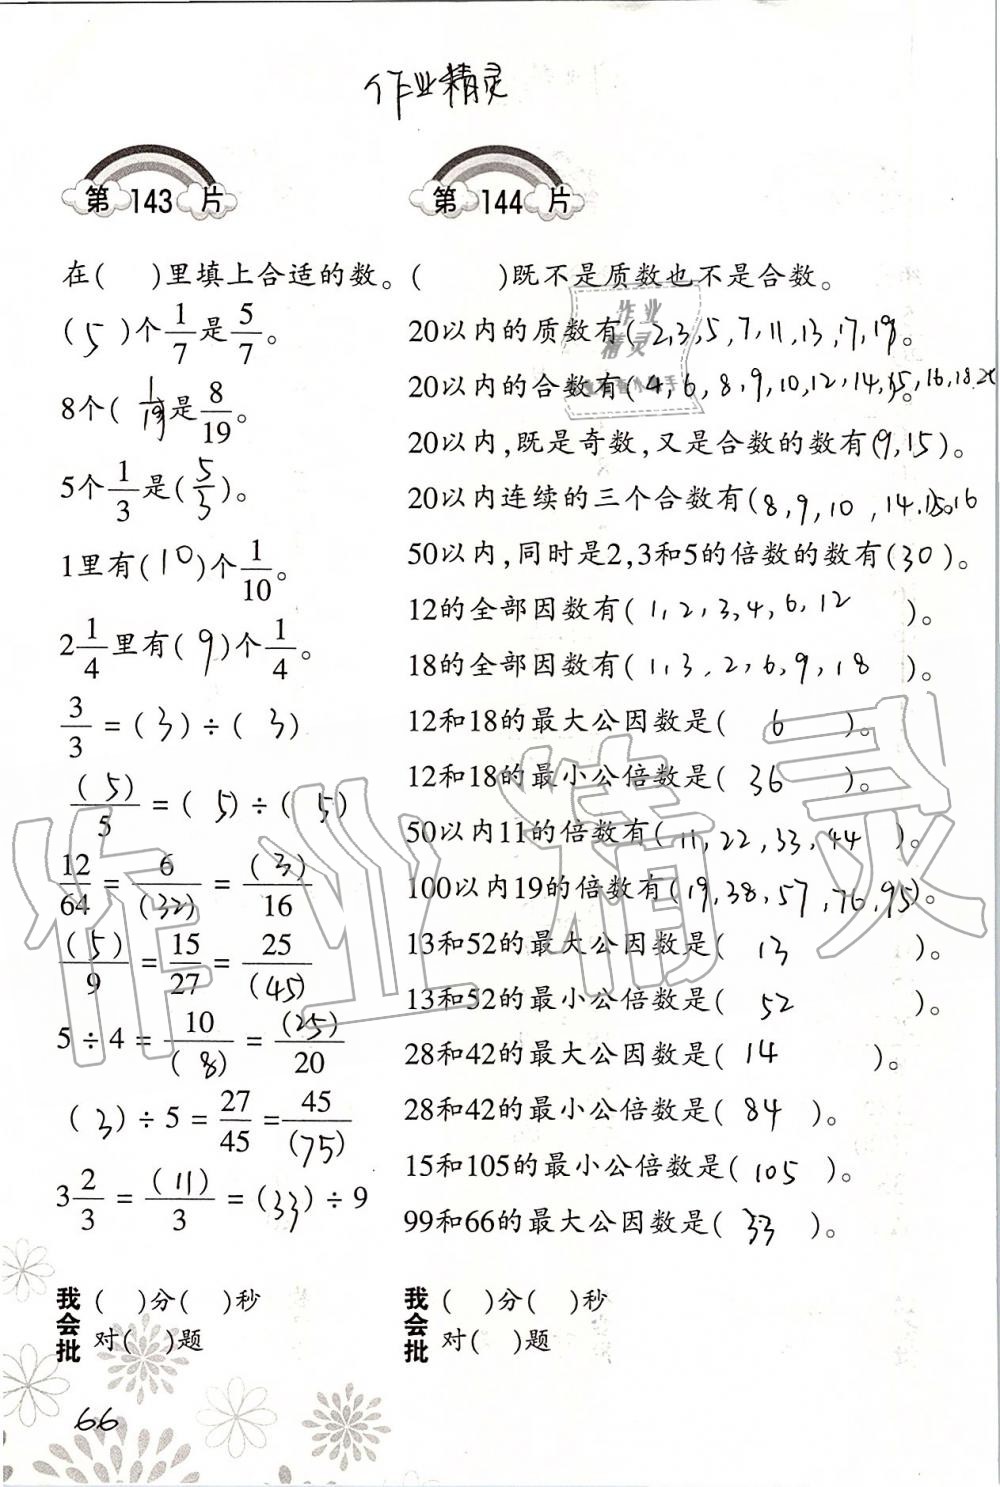 作业精灵
第143片
在(  )里填上合适的数。
(5)个1/7是5/7。
8个(1/19)是8/19。
5个1/3是(5/3)。
1里有(10)个1/10。
2 1/4里有(9)个1/4。
3/3=(3)÷(3)
(5)/5=(5)÷(5)
12/64=6/(32)=(3)/16
(5)/9=15/27=25/(45)
5÷4=10/(8)=(25)/20
(3)÷5=27/45=45/(75)
3 2/3=(11)/3=(33)÷9
我会批
(  )分(  )秒
对(  )题
第144片
(  )既不是质数也不是合数。
20以内的质数有(2,3,5,7,11,13,17,19)。
20以内的合数有(4,6,8,9,10,12,14,15,16,18,20
20以内,既是奇数,又是合数的数有(9,15)。
20以内连续的三个合数有(8,9,10,14,15,16
50以内,同时是2,3和5的倍数的数有(30)。
12的全部因数有(1,2,3,4,6,12)。
18的全部因数有(1,3,2,6,9,18)。
12和18的最大公因数是(6)。
12和18的最小公倍数是(36)。
50以内11的倍数有(11,22,33,44)。
100以内19的倍数有(19,38,57,76,95)。
13和52的最大公因数是(13)。
13和52的最小公倍数是(52)。
28和42的最大公因数是(14)。
28和42的最小公倍数是(84)。
15和105的最小公倍数是(105)。
99和66的最大公因数是(33)。
我会批
(  )分(  )秒
对(  )题
66
作业精灵
作业
精灵